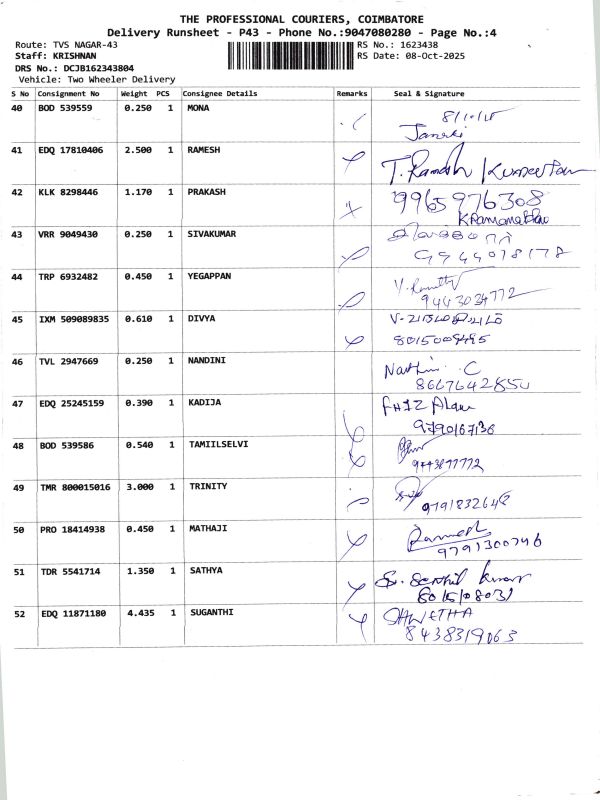 THE PROFESSIONAL COURIERS, COIMBATORE
Delivery Runsheet - P43 - Phone No.:9047080280 - Page No.:4
Route: TVS NAGAR-43 RS No.: 1623438
Staff: KRISHNAN RS Date: 08-Oct-2025
DRS No.: DCJB162343804
Vehicle: Two Wheeler Delivery
S No Consignment No Weight PCS Consignee Details Remarks Seal & Signature
40 BOD 539559 0.250 1 MONA 8/10/25
Janaki
41 EDQ 17810406 2.500 1 RAMESH
T. Ramesh Kumar
42 KLK 8298446 1.170 1 PRAKASH 9965976308
43 VRR 9049430 0.250 1 SIVAKUMAR
9944018178
44 TRP 6932482 0.450 1 YEGAPPAN
9443034772
45 IXM 509089835 0.610 1 DIVYA
46 TVL 2947669 0.250 1 NANDINI
C
47 EDQ 25245159 0.390 1 KADIJA
9790167136
48 BOD 539586 0.540 1 TAMIILSELVI
49 TMR 800015016 3.000 1 TRINITY
9791832648
50 PRO 18414938 0.450 1 MATHAJI Ramesh
9791300746
51 TDR 5541714 1.350 1 SATHYA S. Senthil Kumar
52 EDQ 11871180 4.435 1 SUGANTHI SHWETHA
8438319063